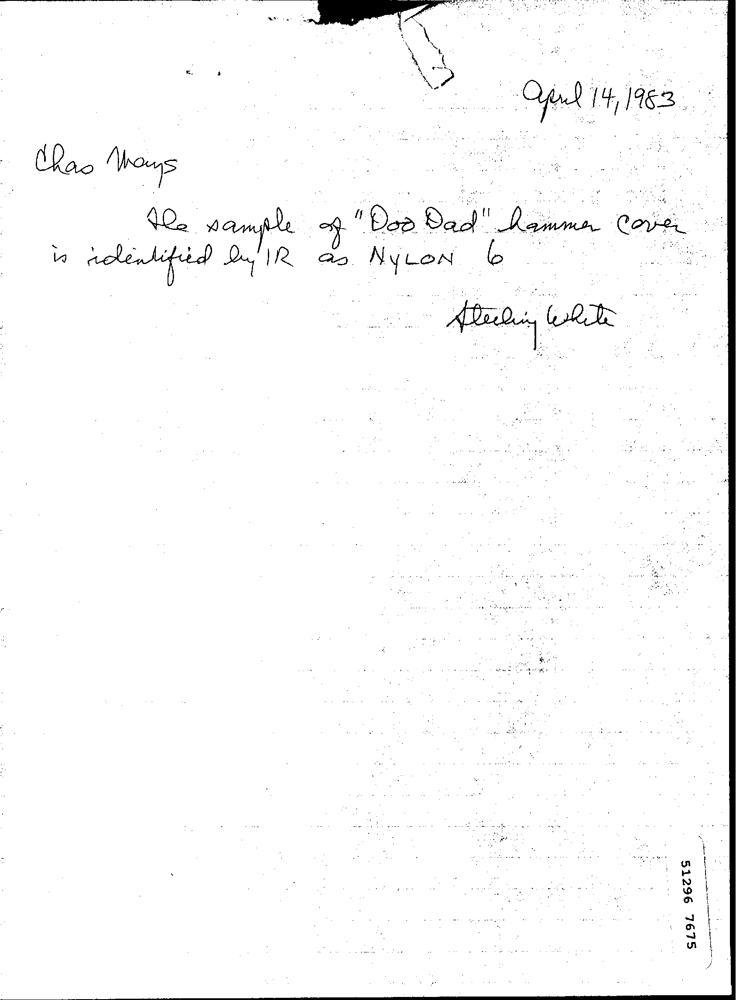 April 14, 1983
Chas Mays
The sample of "Doo Dad" hammer cover
is identified by IR as NYLON 6
Sterling White
51296 7675